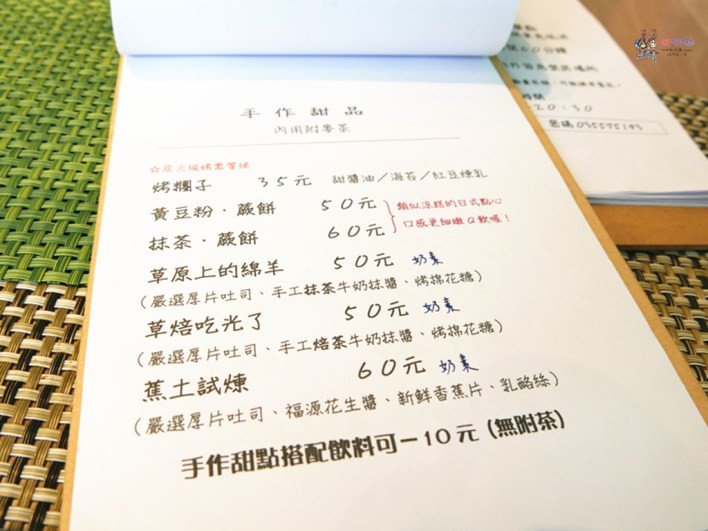 手作甜品
內用附麥茶
☆炭火慢烤需等候
烤糰子 35元 甜醬油／海苔／紅豆煉乳
黃豆粉・蕨餅 50元
抹茶・蕨餅 60元
類似涼糕的日式點心
口感更細嫩Q軟喔！
草原上的綿羊 50元 奶素
（嚴選厚片吐司、手工抹茶牛奶抹醬、烤棉花糖）
草焙吃光了 50元 奶素
（嚴選厚片吐司、手工焙茶牛奶抹醬、烤棉花糖）
蕉土試煉 60元 奶素
（嚴選厚片吐司、福源花生醬、新鮮香蕉片、乳酪絲）
手作甜點搭配飲料可－10元（無附茶）
60分鐘
20:30
密碼 035575193